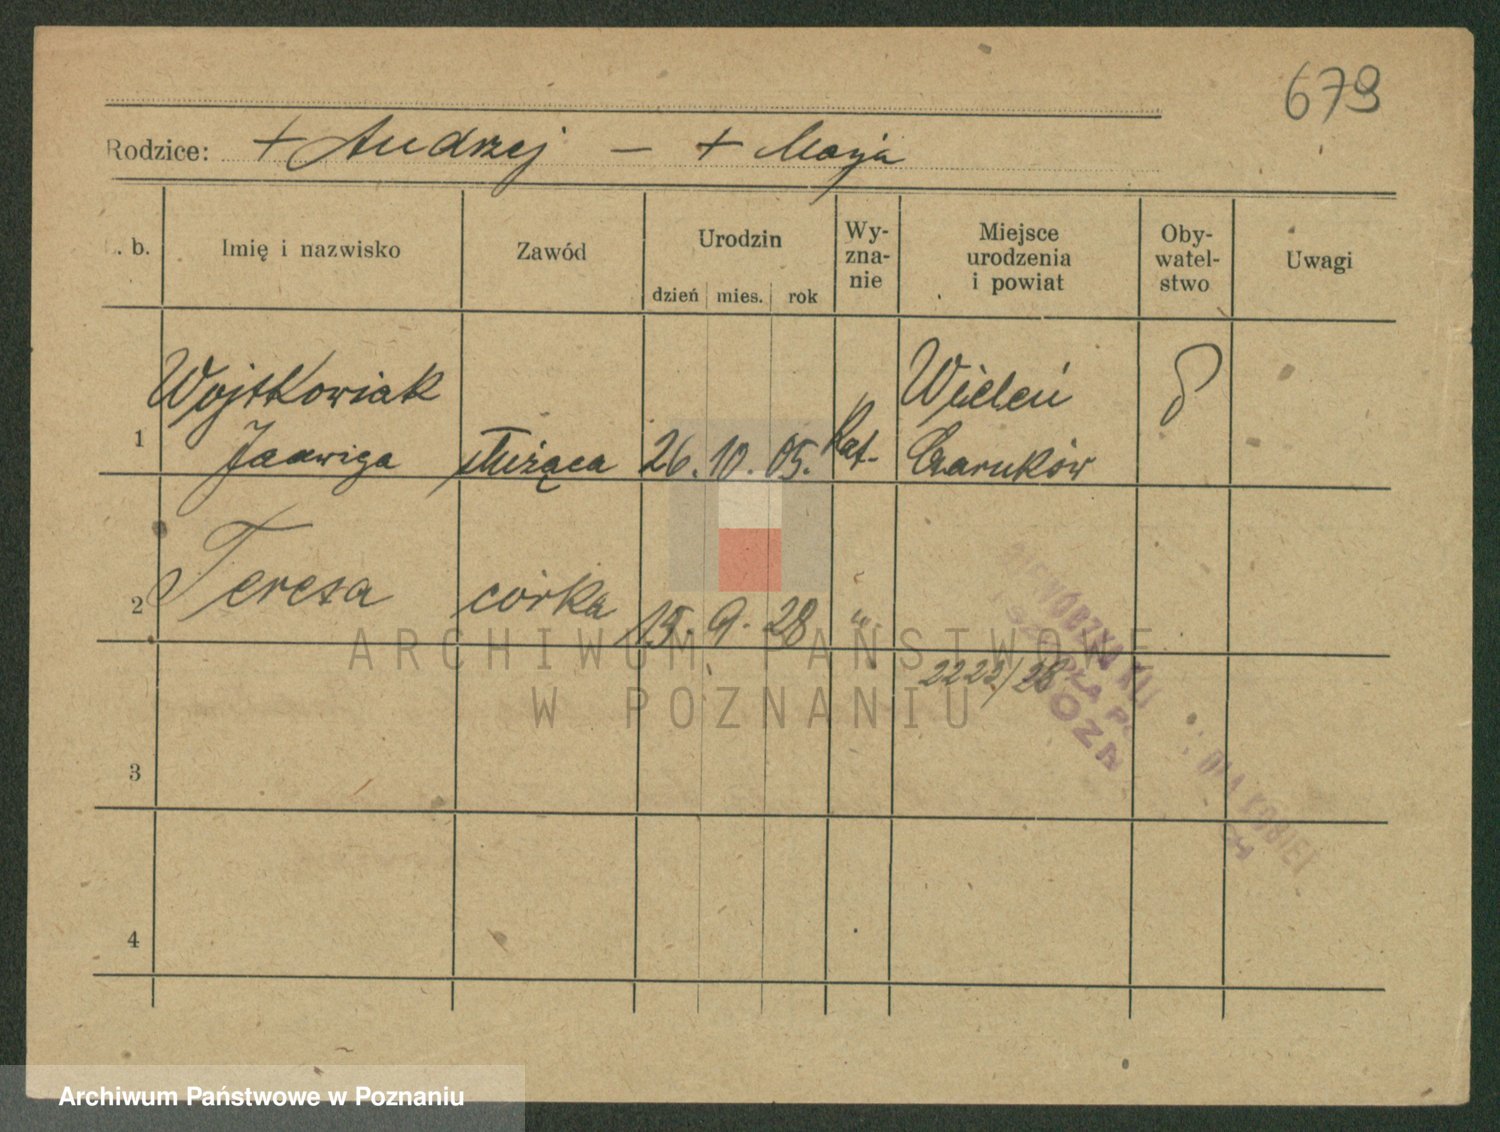 679
Rodzice: + Andrzej — + Marja
. b. Imię i nazwisko Zawód Urodzin dzień mies. rok Wy-zna-nie Miejsce urodzenia i powiat Oby-watel-stwo Uwagi
Wojtkowiak Wieleń
1 Jadwiga służąca 26. 10. 05. Kat. Czarnków
2 Teresa córka 15. 9. 28 "
2222/28
3
4
ARCHIWUM PAŃSTWOWE
W POZNANIU
DLA KOBIET
Archiwum Państwowe w Poznaniu